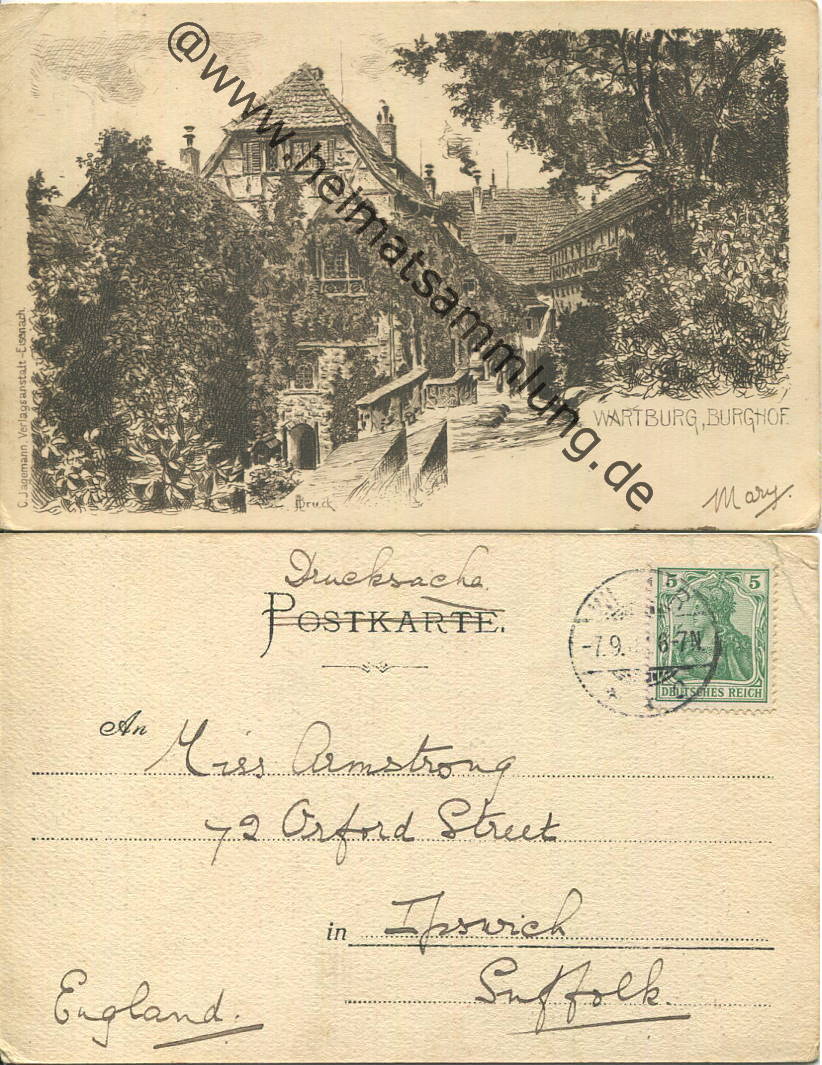 @www.heimatsammlung.de
C. Jagemann, Verlagsanstalt-Eisenach.
WARTBURG, BURGHOF.
Mary.
Drucksache
POSTKARTE.
5 5
-7.9. 6-7N.
DEUTSCHES REICH
An Miss Armstrong
72 Orford Street
in Ipswich
Suffolk.
England.